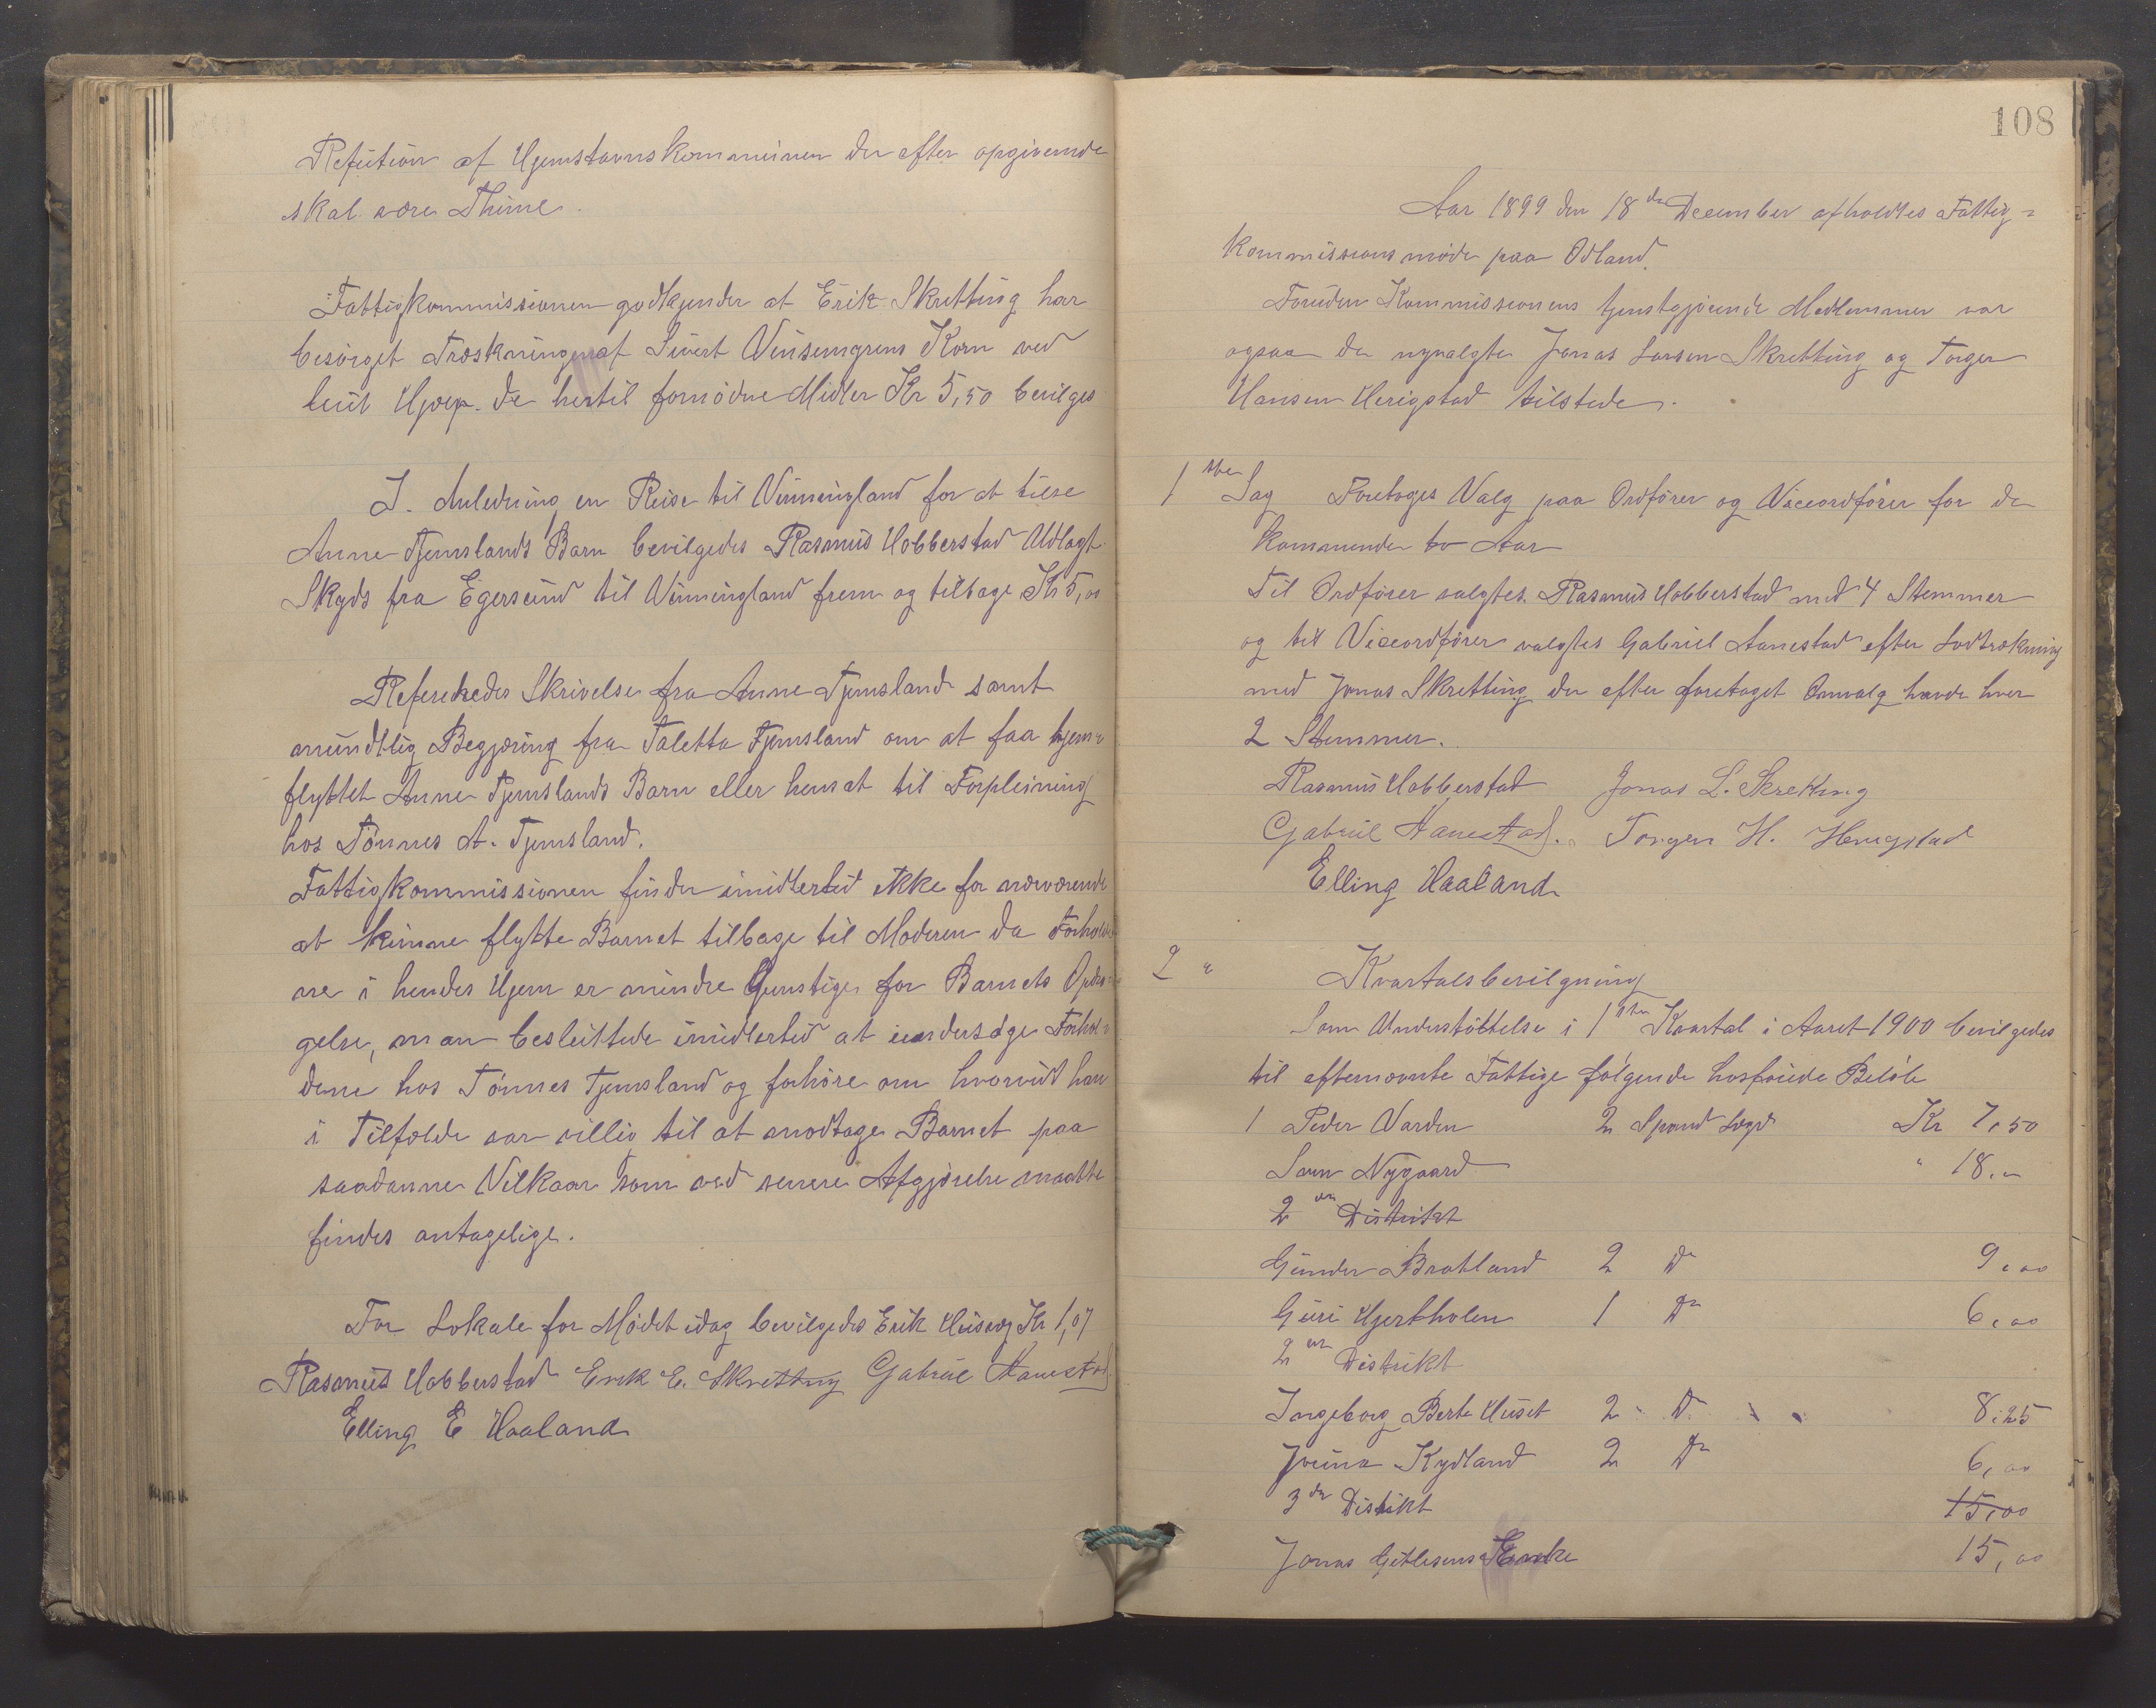 Refution af Hjemstavnskommunen der efter opgivende
skal være Thime.
Fattigkommissionen godkjender at Erik Skretting har
besörget Træskningen af Sivert Vinsemgrens Korn ved
leiet Hjælp. De hertil fornödne Midler Kr 5,50 bevilges
I. Anledning en Reise til Vinningland for at tilse
Anne Tjemslands Barn bevilgedes Rasmus Hobberstad Udlagt
Skyds fra Egersund til Vinningland frem og tilbage Kr 5,00
Refereredes Skrivelse fra Anne Tjemsland samt
mundtlig Begjæring fra Taletta Tjemsland om at faa hjem=
flyttet Anne Tjemslands Barn eller hensat til Forpleining
hos Tönnes A. Tjemsland.
Fattigkommissionen finder imidlertid ikke for nærværende
at kunne flytte Barnet tilbage til Moderen da Forholde
ne i hendes Hjem er mindre Gunstige for Barnets Opdra=
gelse, man besluttede imidlertid at undersøge Forhol=
dene hos Tönnes Tjemsland og forhöre om hvorvidt han
i Tilfælde var villig til at modtage Barnet paa
saadanne Vilkaar som ved senere Afgjörelse maatte
findes antagelige.
For Lokale for Mödet idag bevilgedes Erik Kr 1,07
Rasmus Hobberstad Erik E. Skretting Gabriel Aanestad
Elling E Haaland
108
Aar 1899 den 18de December afholdtes Fattig=
kommissions möde paa Odland.
Foruden Kommissionens tjenstgjörende Medlemmer var
ogsaa de nyvalgte Jonas Larsen Skretting og Torger
Hansen Herigstad tilstede.
1ste Sag Foretoges Valg paa Ordförer og Viceordförer for de
kommende to Aar
Til Ordförer valgtes Rasmus Hobberstad med 4 Stemmer
og til Viceordförer valgtes Gabriel Aanestad efter Lodtrækning
med Jonas Skretting der efter foretaget Omvalg havde hver
2 Stemmer.
Rasmus Hobberstad Jonas L. Skretting
Gabriel Aanestad. Torger H. Herigstad
Elling Haaland
2 " Kvartalsbevilgning
Som Understöttelse i 1ste Kvartal i Aaret 1900 bevilgedes
til efternævnte Fattige følgende hosföiede Belöb
1 Peder Varden 2 Spand Lægd Kr 7,50
Nygaard " 18."
2den Distrikt
Gunder Bratland 2 Do 9,00
Guri Hjertholen 1 Do 6,00
2den Distrikt
Ingeborg Berte Huset 2 " Do " " 8,25
Kydland 2 Do 6,00
3die Distrikt 15,00
Jonas Enke 15,00